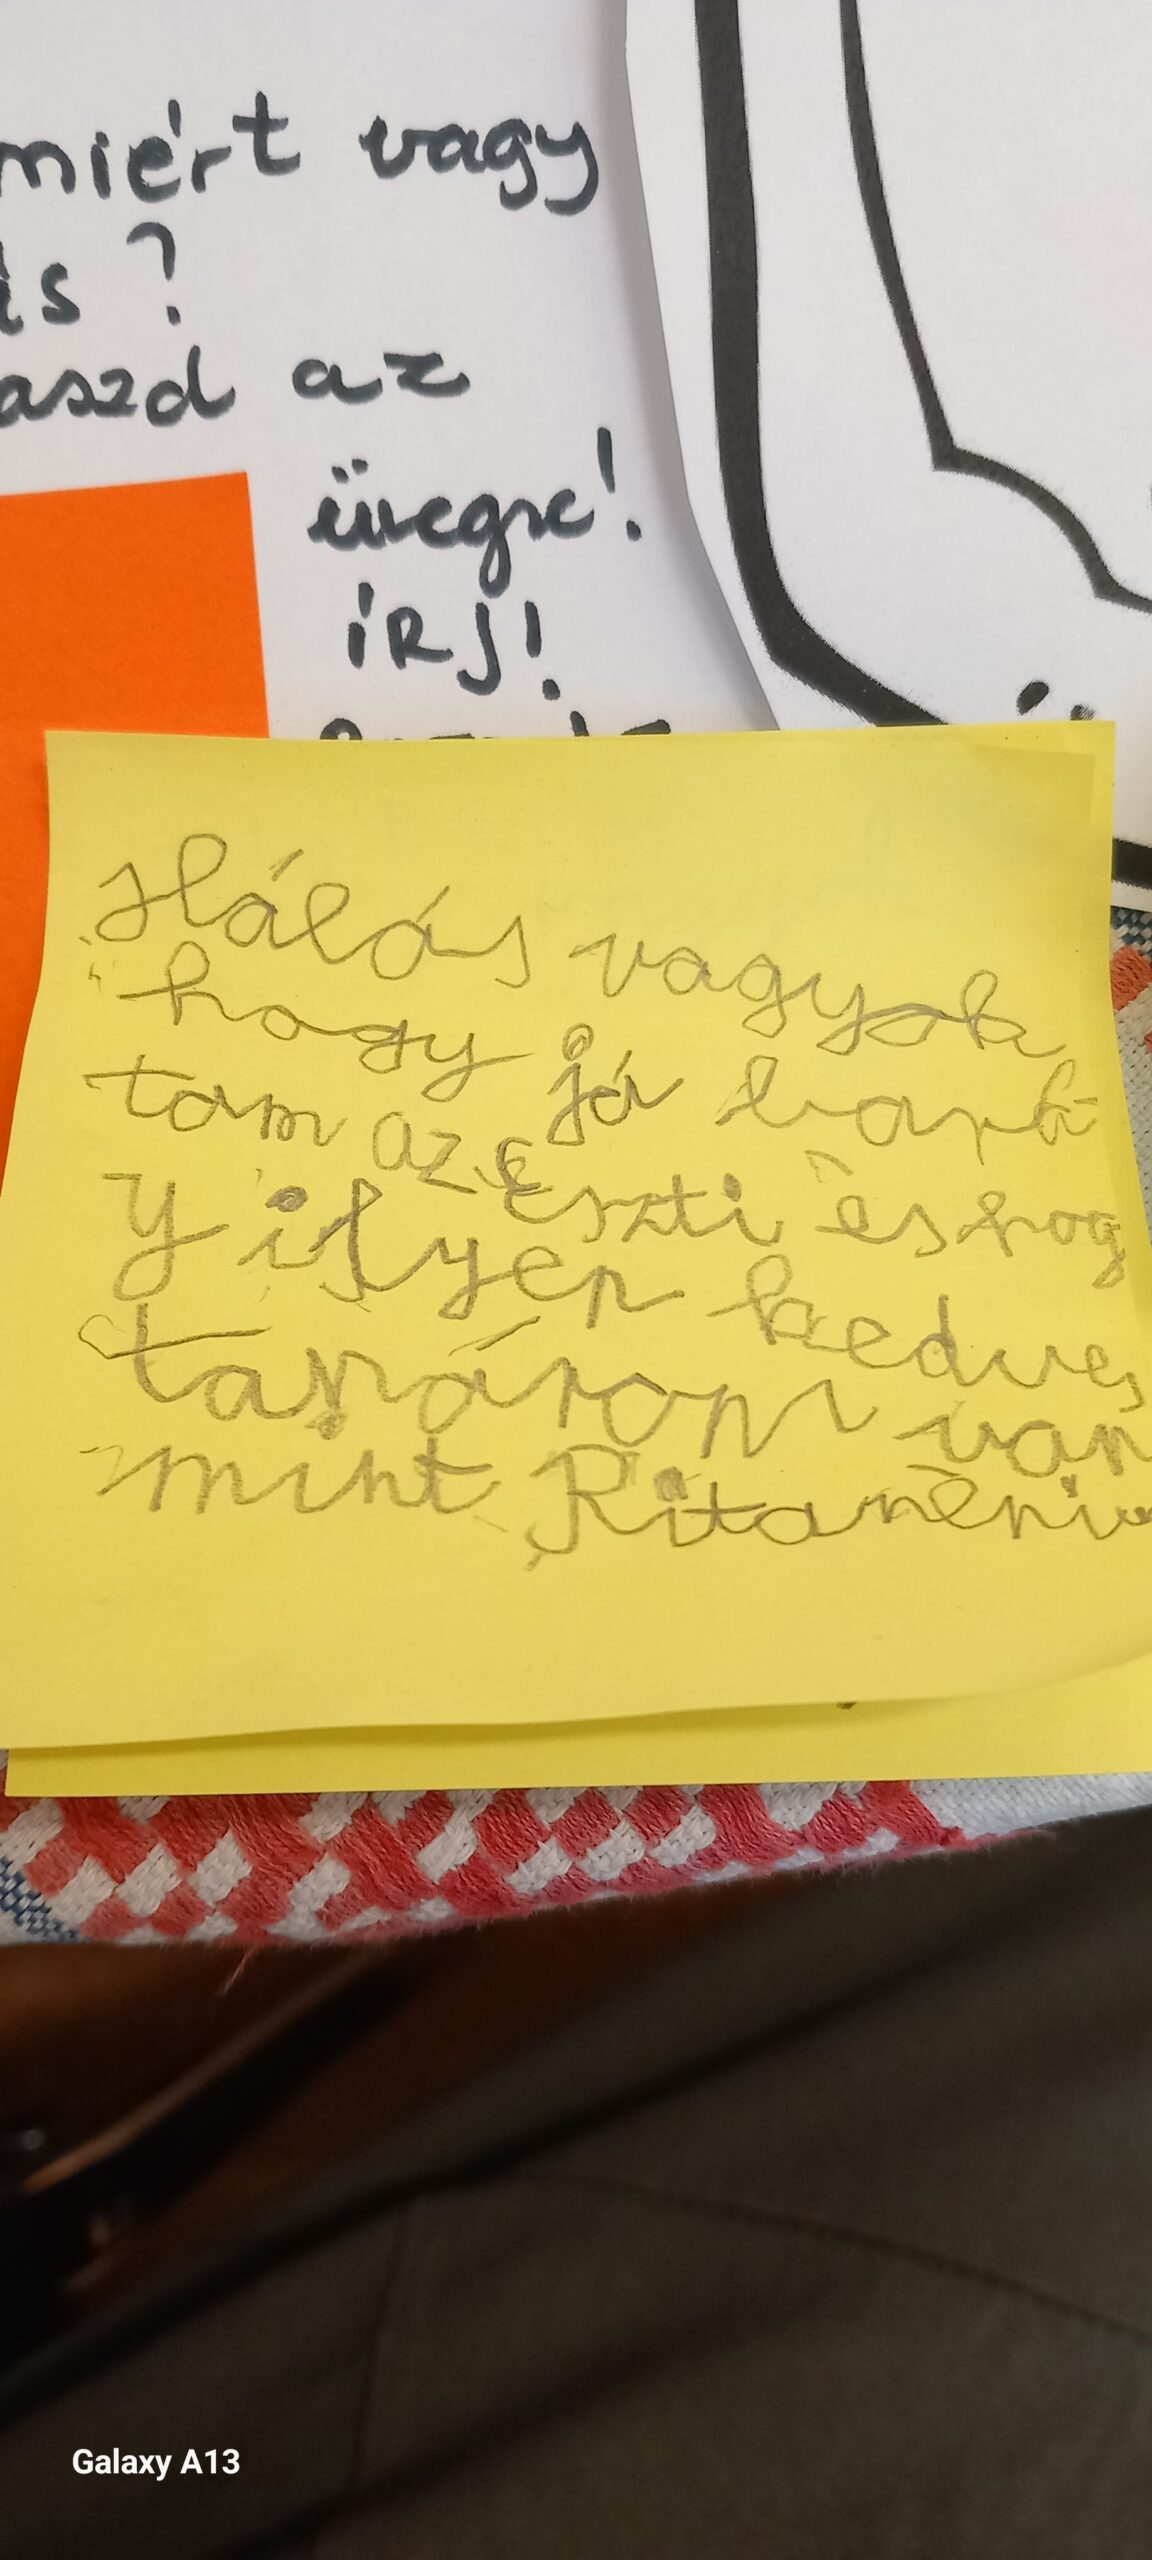 miért vagy
ás?
aszd az
üvegre!
ÍRJ!
Hálás vagyok
hogy jó bará
tom az Eszti és hog
y ilyen kedves
tanárom van
mint Ritanéni
Galaxy A13